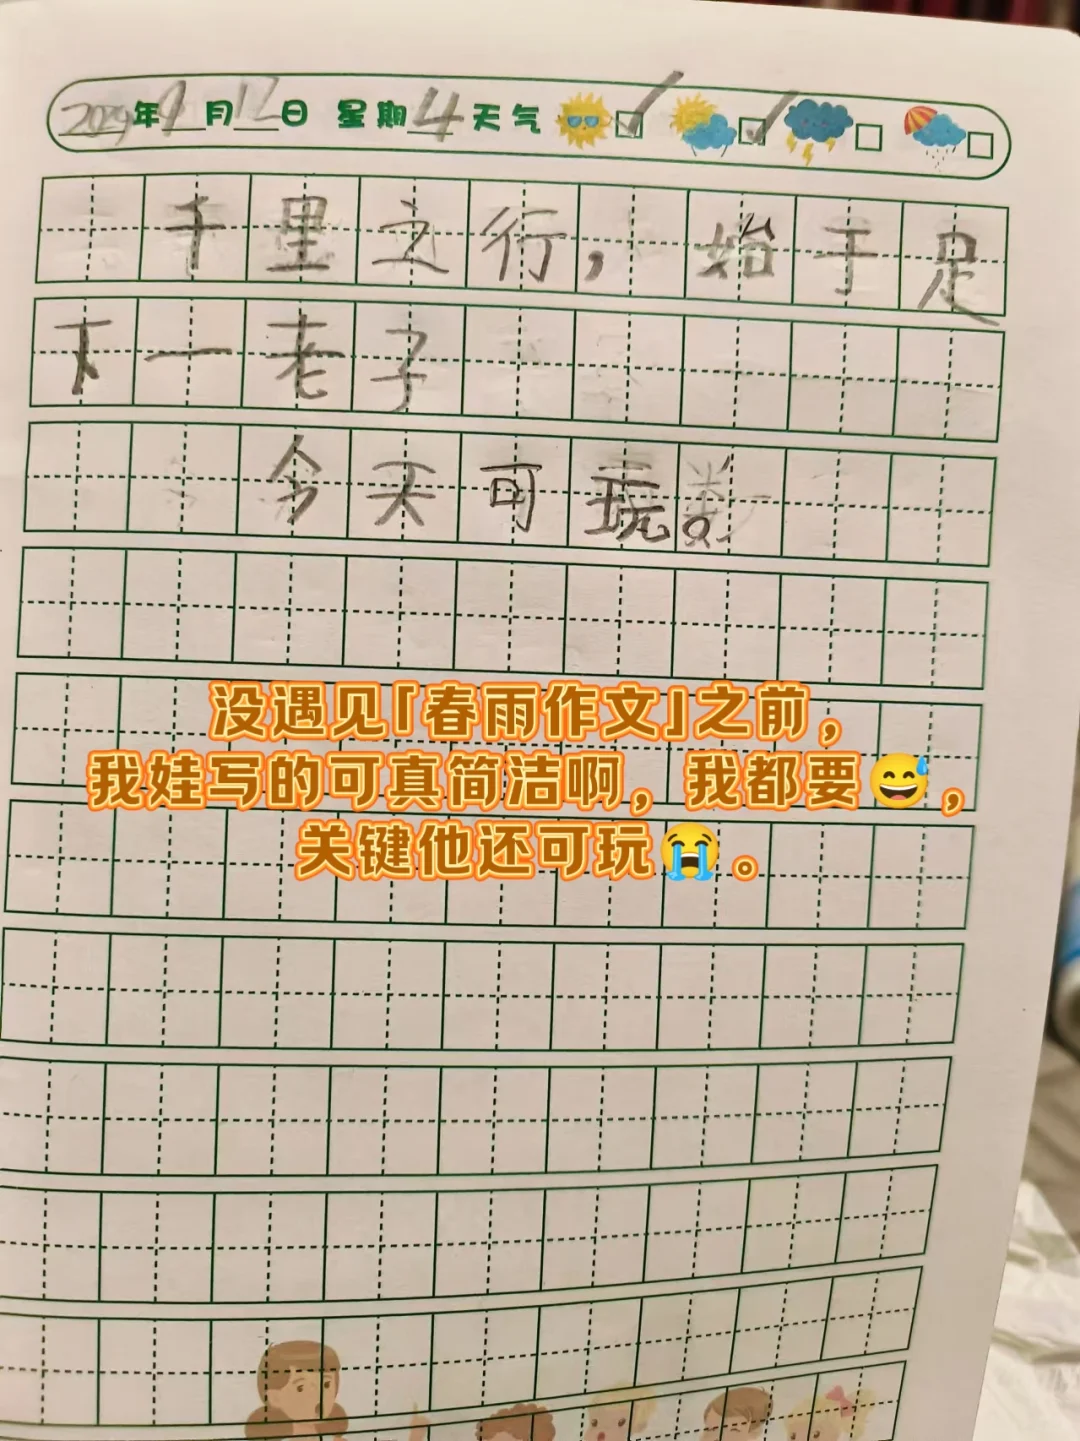 2024年9月12日 星期4天气
千里之行，始于足
下一老子
今天可玩。
没遇见「春雨作文」之前，
我娃写的可真简洁啊，我都要😅，
关键他还可玩😭。